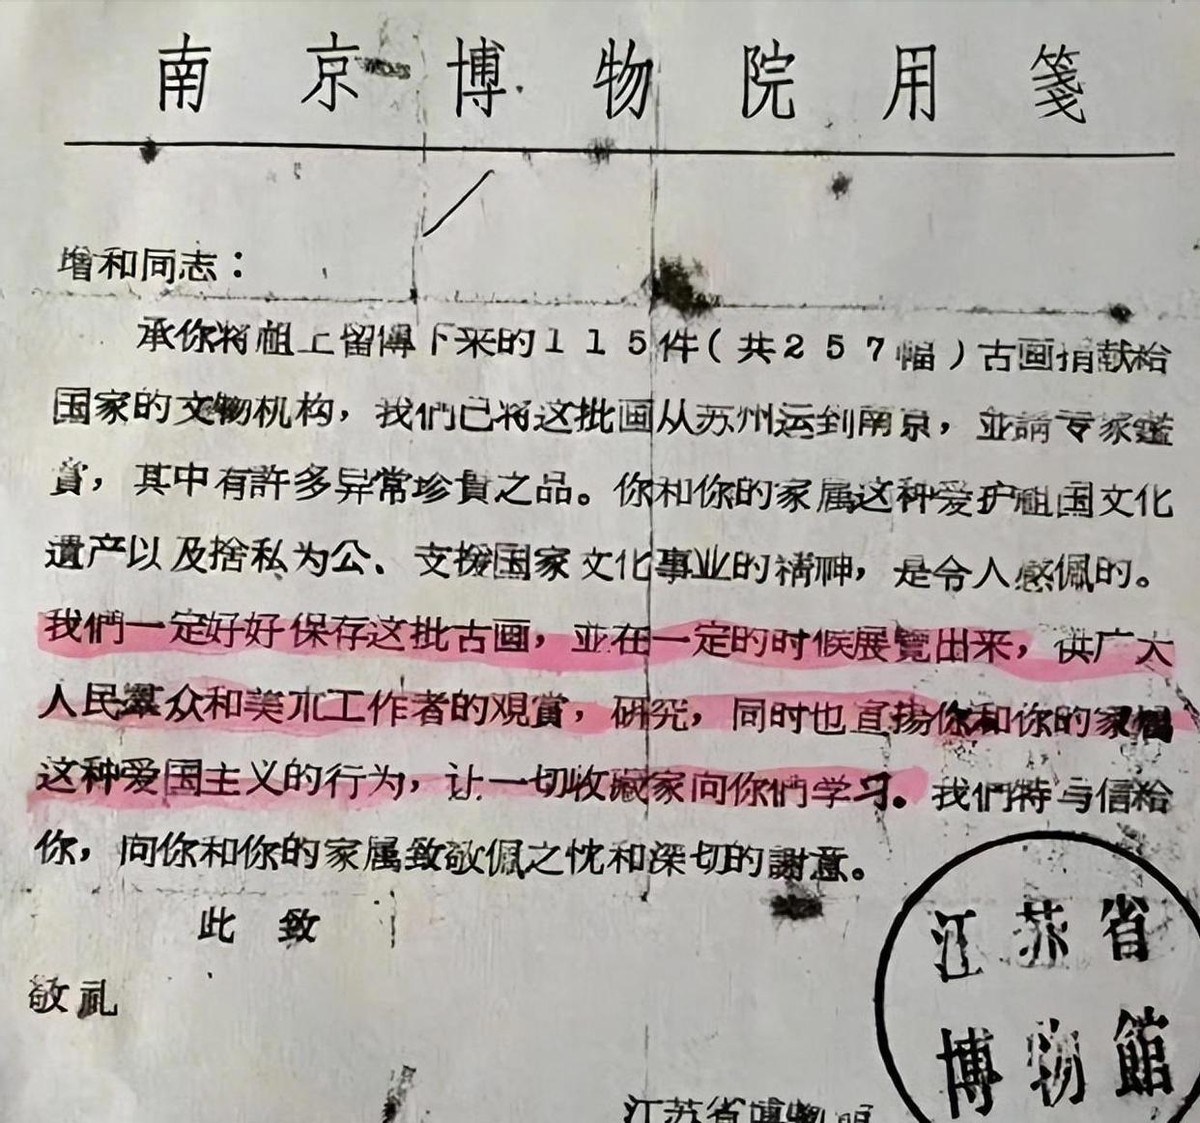 南京博物院用箋
增和同志：
承你将祖上留傳下来的115件（共257幅）古画捐献给
国家的文物机构，我們已将这批画从苏州运到南京，並請专家鑑
賞，其中有許多异常珍貴之品。你和你的家属这种爱护祖国文化
遺产以及捨私为公、支援国家文化事业的精神，是令人感佩的。
我們一定好好保存这批古画，並在一定的时候展覽出来，供广大
人民羣众和美朮工作者的观賞，研究，同时也宣揚你和你的家属
这种爱国主义的行为，让一切收藏家向你們学习。我們特写信给
你，向你和你的家属致敬佩之忱和深切的謝意。
此致
敬礼
江苏省
博物館
江苏省博物